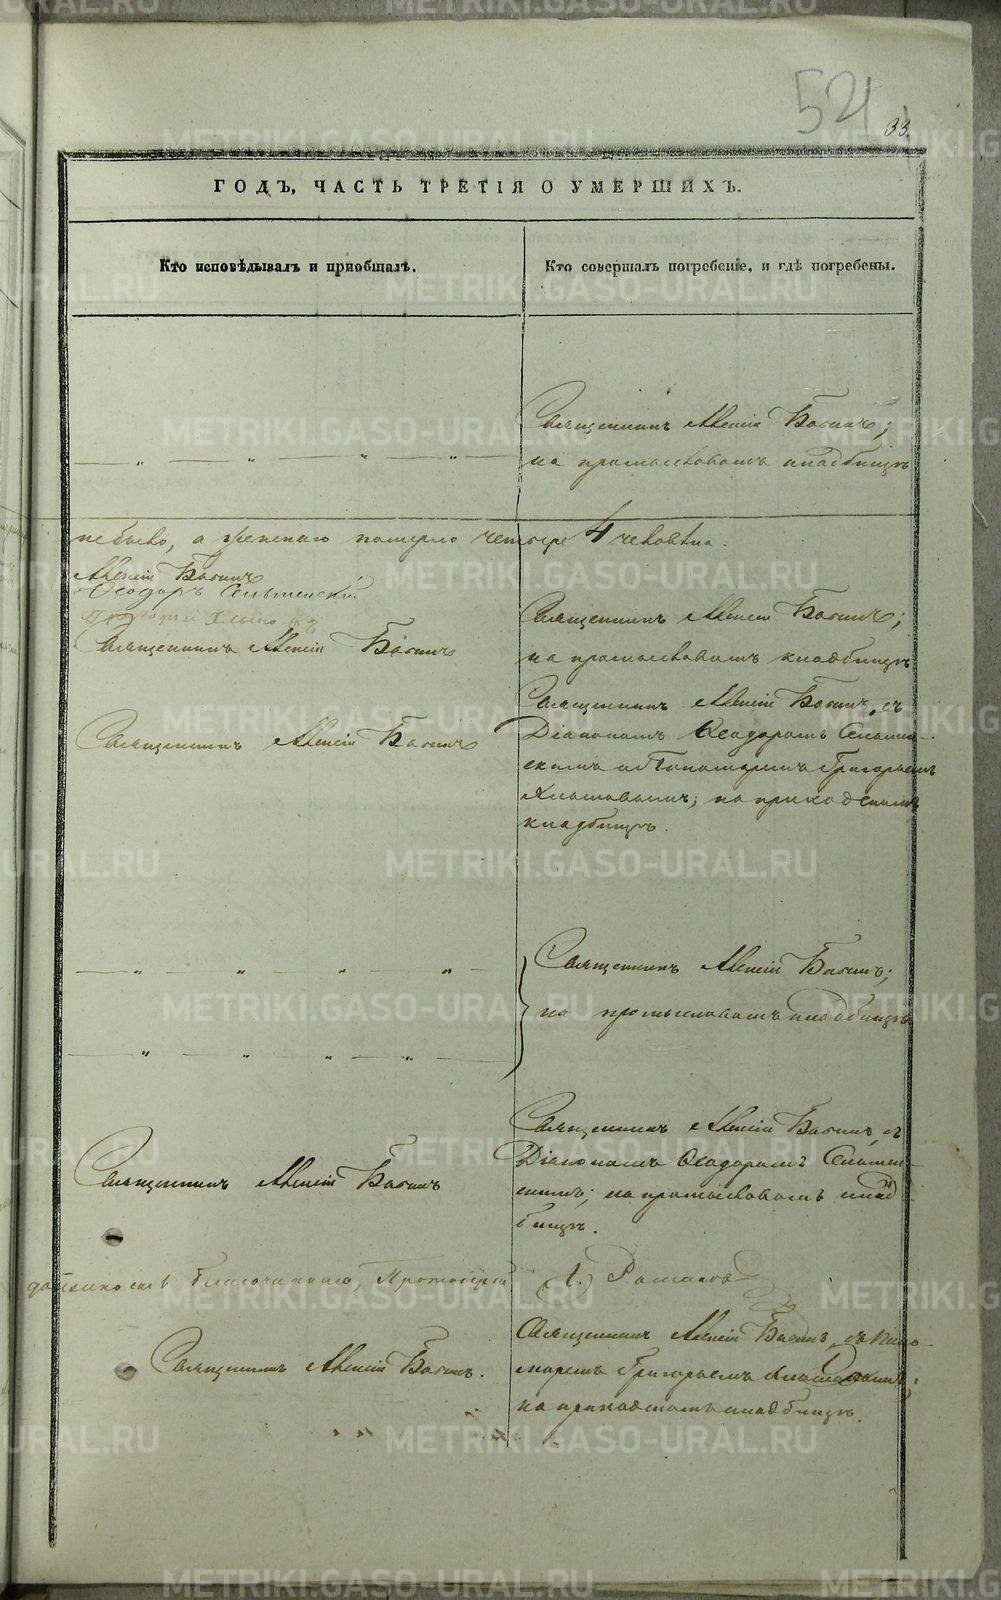 521
33.
ГОДЪ, ЧАСТЬ ТРЕТІЯ О УМЕРШИХЪ.
Кто исповѣдывалъ и пріобщалъ.
Кто совершалъ погребеніе, и гдѣ погребены.
Священникъ Алексій Бабинъ;
на промысловомъ кладбищѣ
небыло, а женскаго померло четыре 4 человѣка.
Алексій Бабинъ
Ѳеодоръ
Священникъ Алексій Бабинъ
Священникъ Алексій Бабинъ;
на промысловомъ кладбищѣ
Священникъ Алексій Бабинъ
Священникъ Алексій Бабинъ, съ
Діакономъ Ѳеодоромъ
скимъ и Пономаремъ Григорьемъ
на приходскомъ
кладбищѣ.
Священникъ Алексій Бабинъ;
на промысловомъ кладбищѣ
Священникъ Алексій Бабинъ
Священникъ Алексій Бабинъ, съ
Діакономъ Ѳеодоромъ
скимъ; на промысловомъ клад
бищѣ.
должность Благочиннаго, Протоіерей
Священникъ Алексій Бабинъ.
Священникъ Алексій Бабинъ, съ Поно-
маремъ Григорьемъ
на приходскомъ кладбищѣ.
METRIKI.GASO-URAL.RU